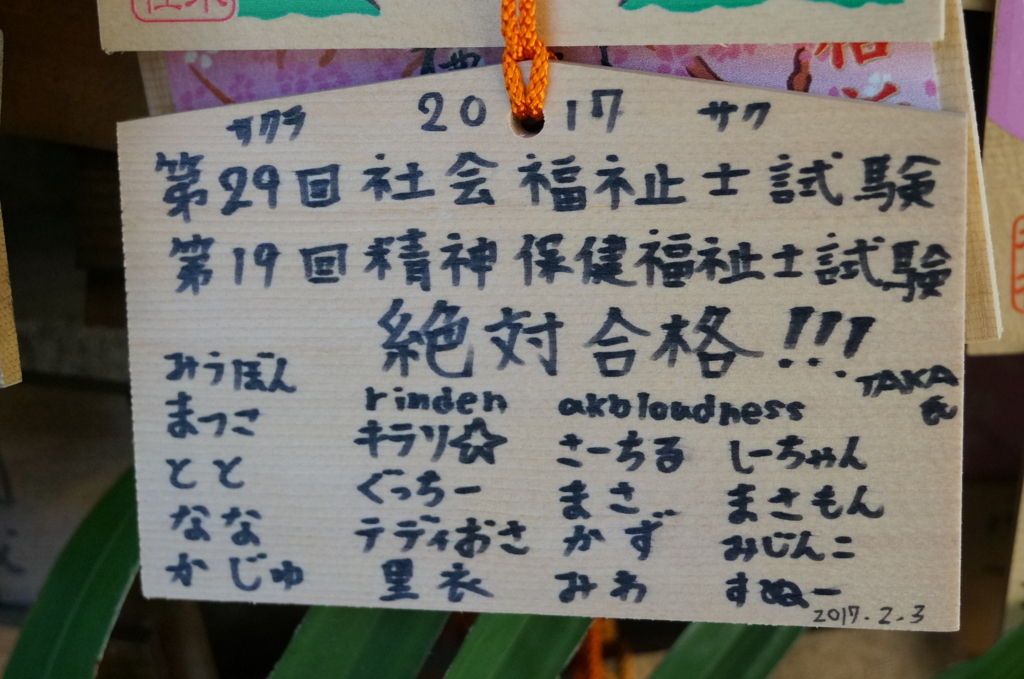 サクラ 2017 サク
第29回社会福祉士試験
第19回精神保健福祉士試験
絶対合格!!!
みうぽん rinden akbloudness TAKA氏
まつこ キラリ☆ さーちる しーちゃん
とと ぐっちー まさ まさもん
なな テディおさ かず みじんこ
かじゅ 里衣 みわ すぬー
2017.2.3